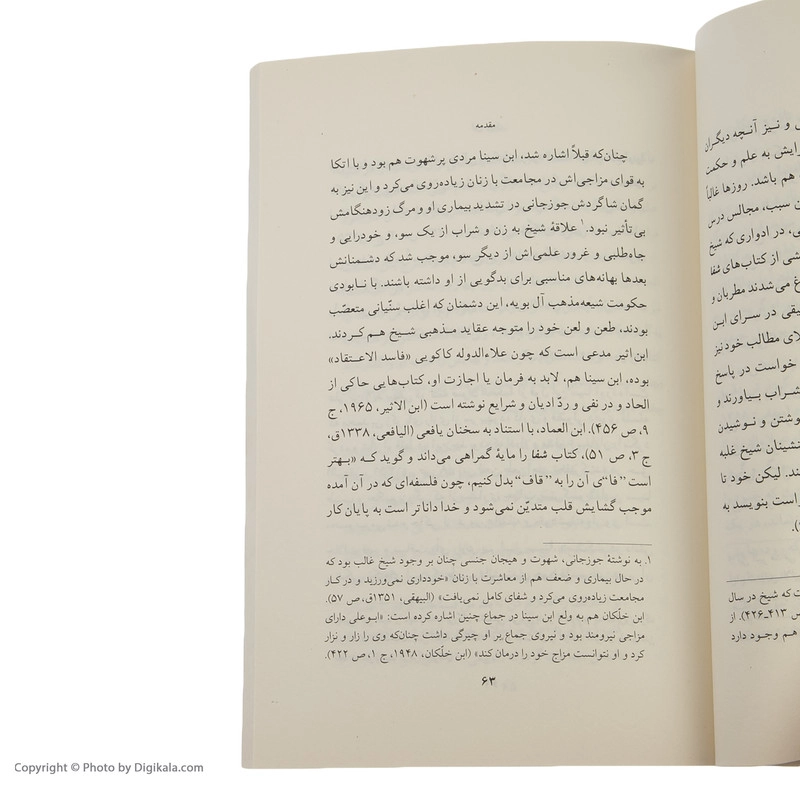 مقدمه
چنان‌که قبلاً اشاره شد، ابن سینا مردی پرشهوت هم بود و با اتکا
به قوای مزاجی‌اش در مجامعت با زنان زیاده‌روی می‌کرد و این نیز به
گمان شاگردش جوزجانی در تشدید بیماری او و مرگ زودهنگامش
بی‌تأثیر نبود.۱ علاقهٔ شیخ به زن و شراب از یک سو، و خودرایی و
جاه‌طلبی و غرور علمی‌اش از دیگر سو، موجب شد که دشمنانش
بعدها بهانه‌های مناسبی برای بدگویی از او داشته باشند. با نابودی
حکومت شیعه‌مذهب آل بویه، این دشمنان که اغلب سنّیانی متعصّب
بودند، طعن و لعن خود را متوجه عقاید مذهبی شیخ هم کردند.
ابن اثیر مدعی است که چون علاءالدوله کاکویی «فاسد الاعتقاد»
بوده، ابن سینا هم، لابد به فرمان یا اجازت او، کتاب‌هایی حاکی از
الحاد و در نفی و ردّ ادیان و شرایع نوشته است (ابن الاثیر، ۱۹۶۵، ج
۹، ص ۴۵۶). ابن العماد، با استناد به سخنان یافعی (الیافعی، ۱۳۳۸ق،
ج ۳، ص ۵۱)، کتاب شفا را مایهٔ گمراهی می‌داند و گوید که «بهتر
است ”فا“ی آن را به ”قاف“ بدل کنیم، چون فلسفه‌ای که در آن آمده
موجب گشایش قلب متدیّن نمی‌شود و خدا داناتر است به پایان کار
۱. به نوشتهٔ جوزجانی، شهوت و هیجان جنسی چنان بر وجود شیخ غالب بود که
در حال بیماری و ضعف هم از معاشرت با زنان «خودداری نمی‌ورزید و در کار
مجامعت زیاده‌روی می‌کرد و شفای کامل نمی‌یافت» (البیهقی، ۱۳۵۱ق، ص ۵۷).
ابن خلّکان هم به ولع ابن سینا در جماع چنین اشاره کرده است: «ابوعلی دارای
مزاجی نیرومند بود و نیروی جماع بر او چیرگی داشت چنان‌که وی را زار و نزار
کرد و او نتوانست مزاج خود را درمان کند» (ابن خلّکان، ۱۹۴۸، ج ۱، ص ۴۲۲).
۶۳
و نیز آنچه دیگران
به علم و حکمت
هم باشد. روزها غالباً
سبب، مجالس درس
در ادواری که شیخ
از کتاب‌های شفا
می‌شدند مطربان و
در سرای ابن
مطالب خود نیز
خواست در پاسخ
بیاورند و
و نوشیدن
شیخ غلبه
لیکن خود تا
است بنویسد به
که شیخ در سال
۴۱۳ـ۴۲۶). از
هم وجود دارد
Copyright © Photo by Digikala.com